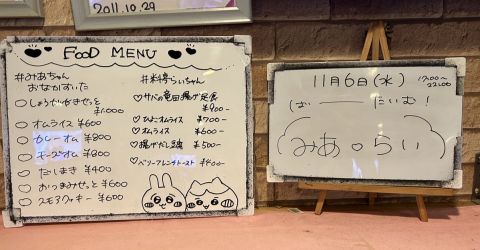 2011.10.29
FOOD MENU
#みあちゃん
おなかすいた
¥1000
オムライス ¥600
カレーオム ¥800
チーズオム ¥800
たいまき ¥400
おつまみせっと ¥600
スモアクッキー ¥600
#料理らいちゃん
♡サバの竜田揚げ定食
¥900-
♡ひよこオムライス ¥700-
♡オムライス ¥600-
♡揚げだし豆腐 ¥500-
♡ベリーフレンチトースト ¥400-
11月6日(水) 17:00〜
22:00
ばーーたいむ!
みあ○らい